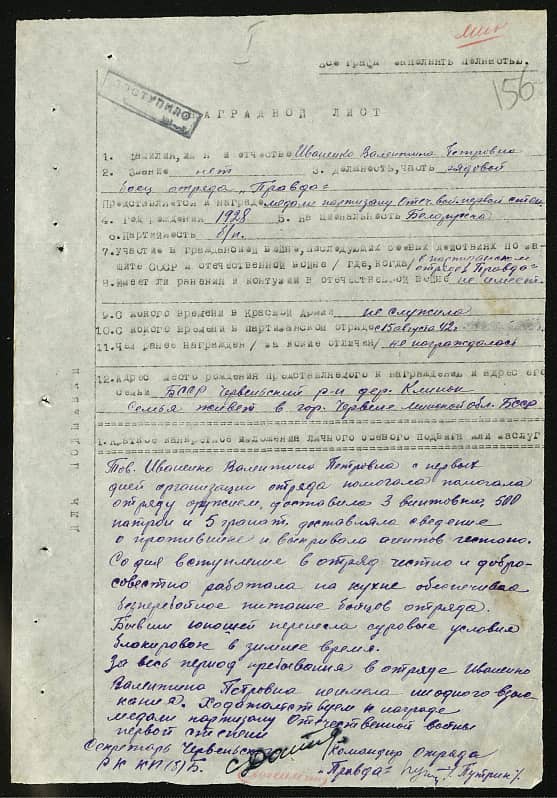 156
Все графы заполнять полностью.
ПОСТУПИЛО
НАГРАДНОЙ ЛИСТ
1. Фамилия, имя и отчество Иваненко Валентина Петровна
2. Звание нет 3. Должность, часть рядовой
боец отряда "Правда"
Представляется к награде медали партизану Отеч. войны первой степ.
4. Год рождения 1928 5. Национальность Белоруска
6. Партийность б/п.
7. Участие в гражданской войне, последующих боевых действиях по за-
щите СССР и отечественной войне / где, когда / в партизанском
отряде "Правда"
8. Имеет ли ранения и контузии в отечественной войне не имеет
9. С какого времени в Красной Армии не служила
10. С какого времени в партизанском отряде с 15 августа 42 г.
11. Чем ранее награжден / за какие отличия / не награждалась
12. Адрес место рождения представляемого к награждению и адрес его
семьи БССР Червенский р-н дер. Клинок
Семья живет в гор. Червене Минской обл. БССР
ДЛЯ ПОДШИВКИ
1. Краткое конкретное изложение личного боевого подвига или заслуг
Тов. Иваненко Валентина Петровна с первых
дней организации отряда помогала помогала
отряду оружием, доставила 3 винтовки, 500
патрон и 5 гранат, доставляла сведение
о противнике и вскривала агентов гестапо.
Со дня вступление в отряд честно и добро-
совестно работала на кухне обеспечивая
безперебойное питание бойцов отряда.
Бывши юношей перенесла суровые условия
блокировок в зимнее время.
За весь период пребывания в отряде Иваненко
Валентина Петровна неимела ниодного взыс-
кания. Ходатайствуем к награде
медали партизану Отечественной войны
первой степени
Секретарь Червенского
РК КП(б)Б.
Командир Отряда
"Правда" / Путрин /.